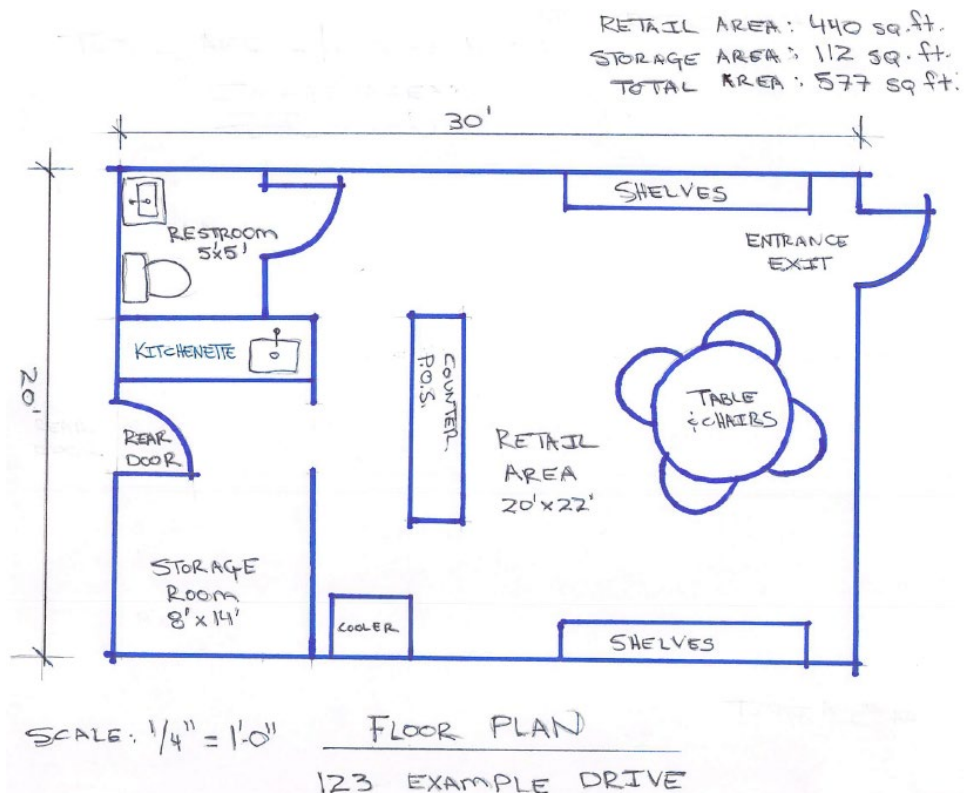 RETAIL AREA: 440 sq.ft.
STORAGE AREA: 112 sq.ft.
TOTAL AREA: 577 sq ft.
30'
SHELVES
RESTROOM
5'x5'
ENTRANCE
EXIT
KITCHENETTE
20'
COUNTER
P.O.S.
TABLE
& CHAIRS
REAR
DOOR
RETAIL
AREA
20'x22'
STORAGE
ROOM
8'x14'
COOLER
SHELVES
SCALE: 1/4" = 1'-0"
FLOOR PLAN
123 EXAMPLE DRIVE